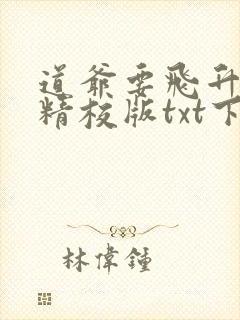 道爷要飞升
精校版txt下
林偉鍾